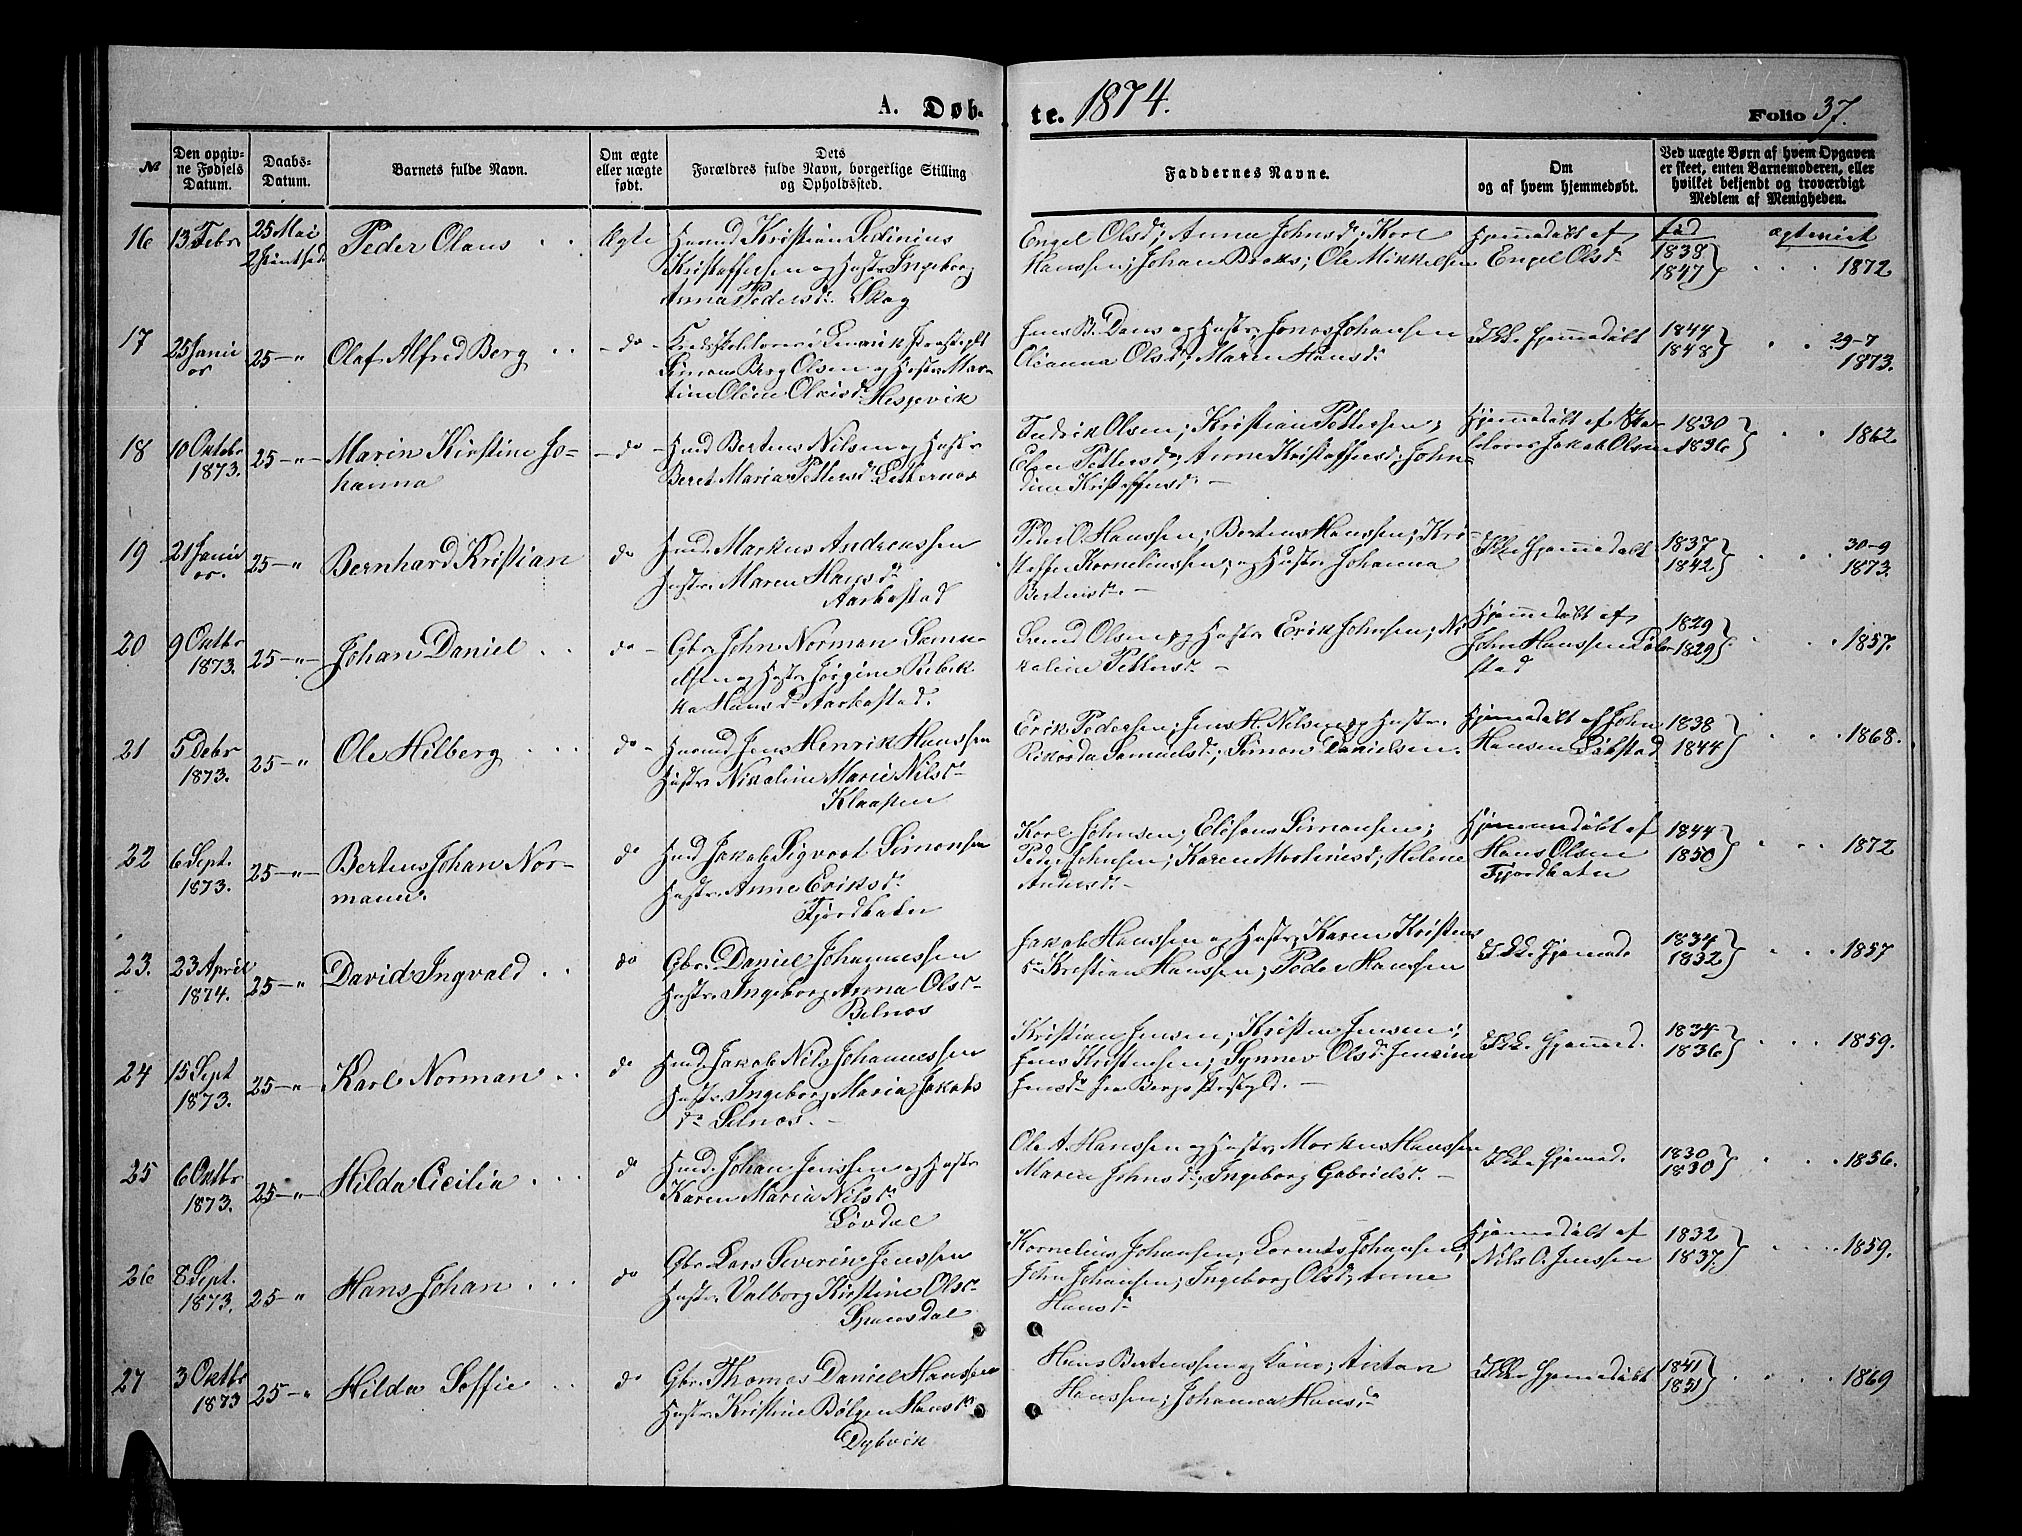 A. Døb-
te. 1874.
Folio 37.
№
Den opgiv-
ne Fødsels
Datum.
Daabs-
Datum.
Barnets fulde Navn.
Om ægte
eller uægte
født.
Dets
Forældres fulde Navn, borgerlige Stilling
og Opholdsted.
Faddernes Navne.
Om
og af hvem hjemmedøbt.
Ved uægte Børn af hvem Opgaven
er skeet, enten Barnemoderen, eller
hvilket bekjendt og troværdigt
Medlem af Menigheden.
16 13 Febr 25 Mai
Peder Olaus
Ægte
Kristian
Kristoffersen og Hustr. Ingeborg
Anna Pedersdr. Skog
Engel Olsdr; Anna Johnsd; Karl
Hanssen; Johan; Ole Mikkelsen
Hjemmedøbt af
Engel Olsdr
fød ægteviet
1838
1847 1872
17 25 Janu
ar 25
Olaf Alfred Berg
do
Simon Berg Olsen og Hustr. Mar-
tine Oline
Jens B. Dons og Hustr; Jonas Johansen
Oleanna Olsd; Maren Hansdr
Ikke Hjemmedøbt
1844
1848 29-7
1873.
18 10 Oktbr
1873. 25
Maren Kirstine Jo-
hanna
do
Bertens Nilsen og Hustr
Beret Maria Pettersd.
Fredrik Olsen; Kristian Pettersen;
Pettersd; Anne Kristoffersd; John-
Kristoffersdr
Hjemmedøbt af
Jakob Olsen
1830
1836 1862
19 21 Janu
ar. 25
Bernhard Kristian
do
Markus Andreassen
Hustr. Maren Hansdr
Aarbostad
Peder O. Hanssen; Bertens Hanssen; Kri-
Kornelinssen; og Hustr Johanna
Ikke Hjemmedøbt
1837
1842 30-9
1873.
20 9 Oktbr
1873. 25
Johan Daniel
do
Gbr. John Norman Samu-
elsen og Hustr Jørgine Rebek-
ka Hansd Aarbostad.
Olsen og Hustr Erik Johnsen; Ni-
kaline Pettersdr
Hjemmedøbt af
John Hanssen Løb-
stad
1829
1829 1857.
21 5 Debr
1873. 25
Ole Hilberg
do
Jens Henrik Hanssen
Hustr. Nikoline Marie Nilsdr
Klaasten
Erik Pedersen; Jens H. Nilsen og Hustr.
Samuelsdr; Simon Danielsen.
Hjemmedøbt af John
Hansen Løbstad
1838
1844 1868.
22 6 Sept.
1873. 25
Bertens Johan Nor-
mann.
do
Jakob Sigvart Simonsen
Hustr. Anne Eriksdr
Fjordbotn
Karl Johnsen; Elifons Simonsen;
Peder Johnsen; Karen; Helene
Andersdr
Hjemmedøbt af
Hans Olsen
Fjordbotn
1844
1850 1872
23. 23 April
1874. 25
David Ingvald
do
Gbr. Daniel Johannessen
Hustr. Ingeborg Anna Olsdr
Selnes
Jakob Hanssen og Hustr; Karen Kristens
dr Kristian Hanssen; Peder Hanssen
Ikke Hjemmd.
1834
1832 1857
24 15 Sept
1873. 25
Karl Norman
do
Jakob Nils Johannessen
Hustr. Ingeborg Maria Jakobs
dr Selnes.
Kristian Jensen; Kristen Jensen;
Jens Kristensen; Synnev Olsd; Jensine
Jensdr fra Bergs Præstgjld.
Ikke Hjemmed.
1834
1836 1859.
25 6 Oktbr
1873. 25
Hilda Cicilia
do
Johan Jenssen og Hustr
Karen Maria Nilsdr
Løvdal
Ole A. Hanssen og Hustr; Markus Hanssen
Maren Johnsdr; Ingeborg Gabrielsdr.
Ikke Hjemmed.
1830
1830 1856.
26 8 Sept.
1873. 25
Hans Johan
do
Gbr. Lars Severin Jenssen
Hustr. Valborg Kirstine Olsdr
Spansdal
Kornelius Johansen; Lorents Johansen;
John Johansen; Ingeborg Olsd; Anne
Hansdr
Hjemmedøbt af
Nils O. Jenssen
1832
1837. 1859.
27 3 Oktbr
1873 25
Hilda Soffie
do
Gbr. Thomas Daniel Hanssen
Hustr. Kristine Bølgen Hansdr
Dybvik
Hans Bertenssen og Kone; Anton
Hanssen; Johanna Hansdr
Ikke Hjemmedøbt
1841
1851 1869